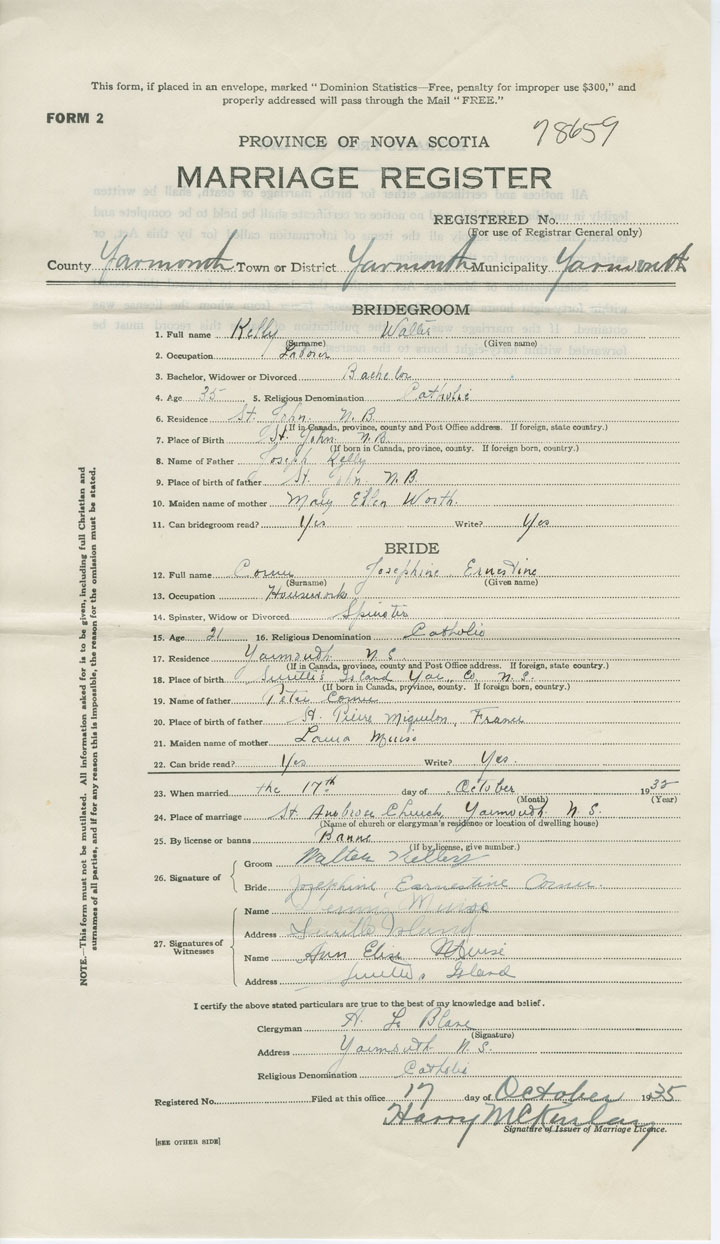 This form, if placed in an envelope, marked "Dominion Statistics—Free, penalty for improper use $300," and
properly addressed will pass through the Mail "FREE."
FORM 2
78659
PROVINCE OF NOVA SCOTIA
MARRIAGE REGISTER
REGISTERED No.
(For use of Registrar General only)
County Yarmouth Town or District Yarmouth Municipality Yarmouth
BRIDEGROOM
1. Full name Kelly Walter
(Surname) (Given name)
2. Occupation Laborer
3. Bachelor, Widower or Divorced Bachelor
4. Age 35 5. Religious Denomination Catholic
6. Residence St. John N.B.
(If in Canada, province, county and Post Office address. If foreign, state country.)
7. Place of Birth St. John N.B.
(If born in Canada, province, county. If foreign born, country.)
8. Name of Father Joseph Kelly
9. Place of birth of father St. John N.B.
10. Maiden name of mother Mary Ellen Worth.
11. Can bridegroom read? Yes Write? Yes
BRIDE
12. Full name Josephine Ernestine
(Surname) (Given name)
13. Occupation Housework
14. Spinster, Widow or Divorced Spinster
15. Age 21 16. Religious Denomination Catholic
17. Residence Yarmouth N.S.
(If in Canada, province, county and Post Office address. If foreign, state country.)
18. Place of birth Surette's Island Yar. Co. N.S.
(If born in Canada, province, county. If foreign born, country.)
19. Name of father Peter
20. Place of birth of father St. Pierre Miquelon, France
21. Maiden name of mother Laura Muise
22. Can bride read? Yes Write? Yes.
23. When married the 17th day of October 1935
(Month) (Year)
24. Place of marriage St Ambrose Church, Yarmouth N.S.
(Name of church or clergyman's residence or location of dwelling house)
25. By license or banns Banns
(If by license, give number.)
26. Signature of
Groom Walter Kelley
Bride Josephine Earnestine
27. Signatures of Witnesses
Name Muise
Address Surette Island
Name Ann Elise Muise
Address Surette's Island
I certify the above stated particulars are true to the best of my knowledge and belief.
Clergyman A. Le Blanc
(Signature)
Address Yarmouth N.S.
Religious Denomination Catholic
Registered No. Filed at this office 17 day of October 1935
Harry McKinlay
Signature of Issuer of Marriage Licence.
[SEE OTHER SIDE]
NOTE.—This form must not be mutilated. All information asked for is to be given, including full Christian and
surnames of all parties, and if for any reason this is impossible, the reason for the omission must be stated.